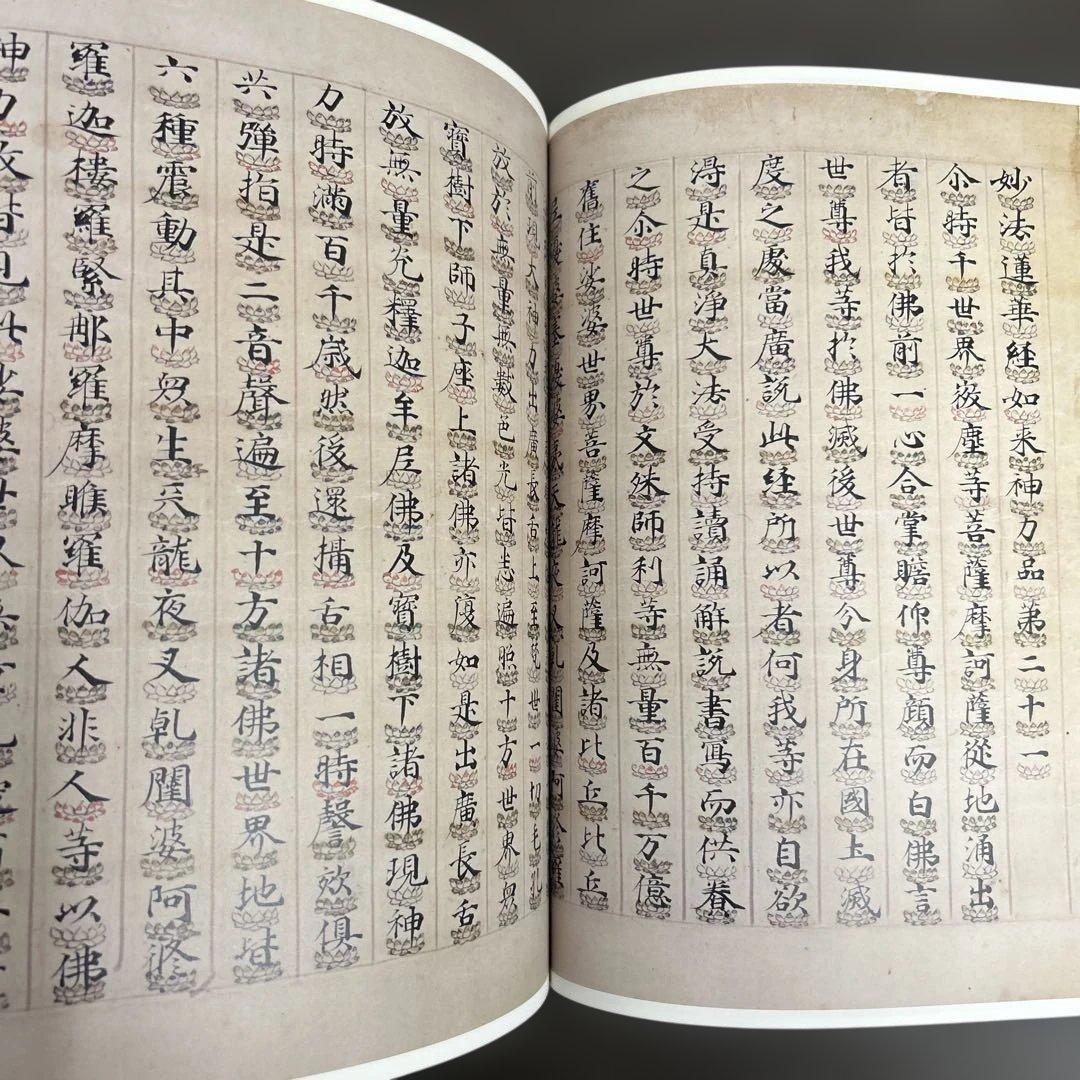 妙法蓮華経如来神力品第二十一
尒時千世界㣲塵等菩薩摩訶薩從地涌出
者皆於佛前一心合掌瞻仰尊顔而白佛言
世尊我等於佛滅後世尊分身所在國土滅
度之處當廣説此経所以者何我等亦自欲
得是真淨大法受持讀誦解説書寫而供養
之尒時世尊於文殊師利等無量百千万億
舊住娑婆世界菩薩摩訶薩及諸比丘比丘
現大神力出廣長舌上至梵世一切毛孔
放於無量無數色光皆悉遍照十方世界衆
寶樹下師子座上諸佛亦復如是出廣長舌
放無量光釋迦牟尼佛及寶樹下諸佛現神
力時滿百千歳然後還攝舌相一時謦欬俱
共彈指是二音聲遍至十方諸佛世界地皆
六種震動其中衆生天龍夜叉乹闥婆阿脩
羅迦樓羅緊那羅摩睺羅伽人非人等以佛
神力故皆見此